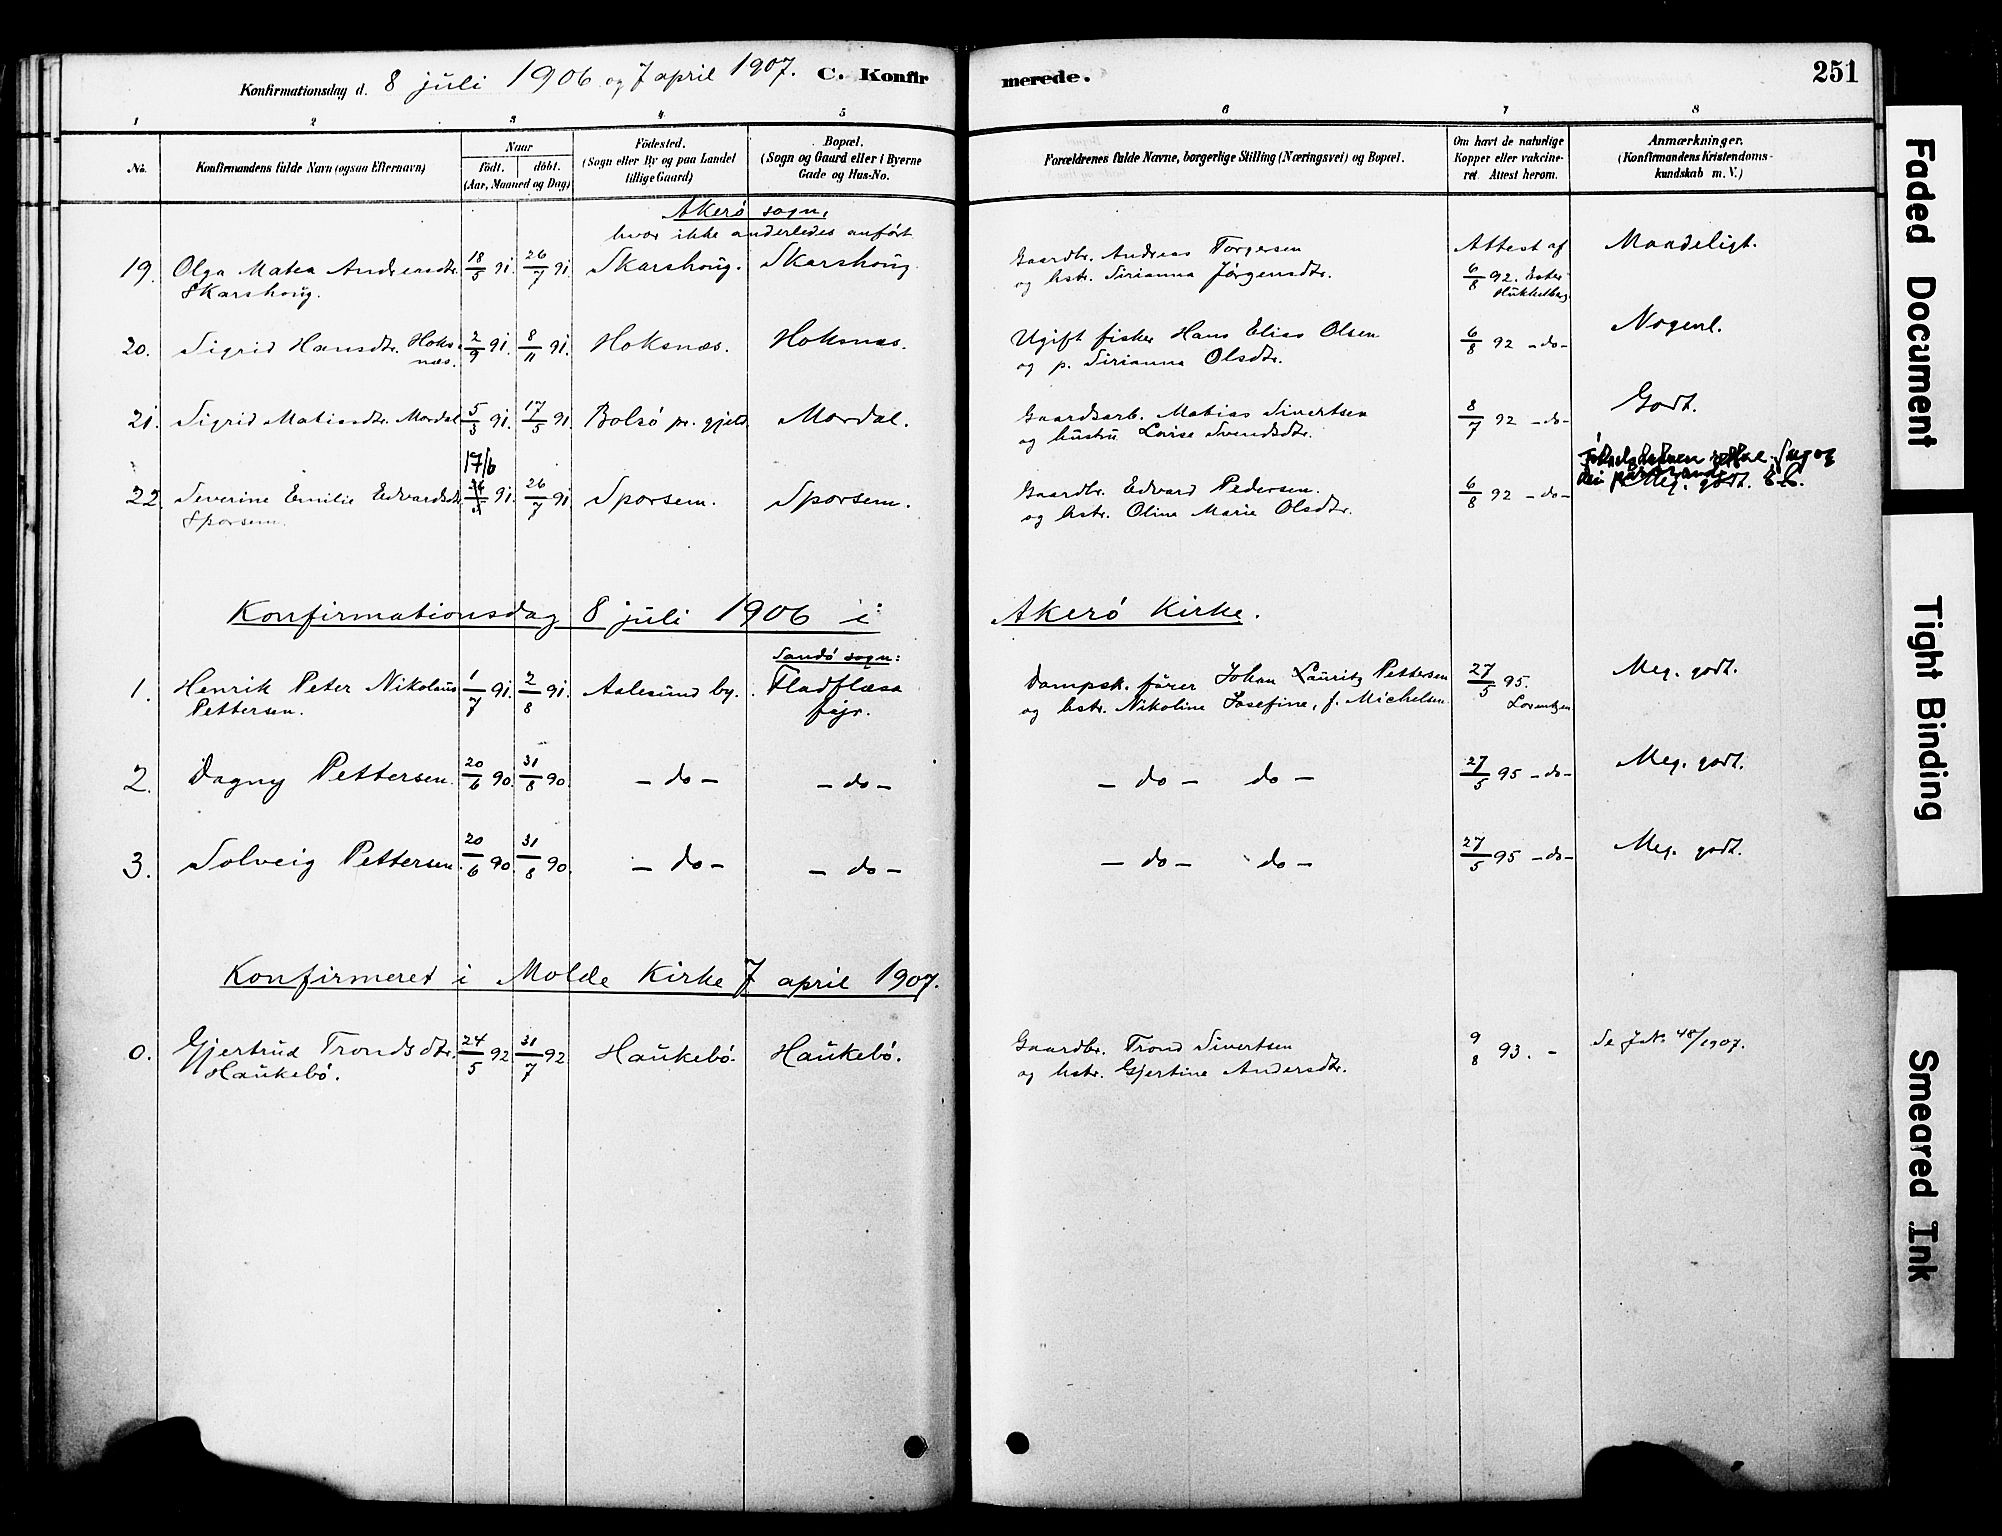 Konfirmationsdag d. 8 juli 1906 og 7 april 1907. C. Konfir merede. 251
1 2 3 4 5 6 7 8
No. Konfirmandens fulde Navn (ogsaa Efternavn)
Naar
Født. døbt.
(Aar, Maaned og Dag)
Födested.
(Sogn eller By og paa Landet
tillige Gaard)
Bopæl.
(Sogn og Gaard eller i Byerne
Gade og Hus-No.
Forældrenes fulde Navne, borgerlige Stilling (Næringsvei) og Bopæl.
Om havt de naturlige
Kopper eller vakcine-
ret. Attest herom.
Anmærkninger.
(Konfirmandens Kristendoms-
kundskab m. V.)
Akerö sogn,
hvor ikke anderledes anfört
19. Olga Matea Andreasdtr. 18/5 91. 26/7 91. Skarshoug. Skarshoug. Gaardbr. Andreas Torgersen Attest af Maadeligt.
Skarshoug. og hstr. Sirianna Jörgensdtr. 6/8 92.
20. Sigrid Hansdtr. Hoks- 2/9 91. 8/11 91. Hoksnæs. Hoksnæs. Ugift fisker Hans Elias Olsen 6/8 92 -do- Nogenl.
næs. og p. Sirianna Olsdtr.
21. Sigrid Matiasdtr. Mordal 5/3 91. 17/5 91. Bolsö pr. gjeld. Mordal. Gaardsarb. Matias Sivertsen 8/7 92 -do- Godt.
og hustru Lovise Svendsdtr.
17/6
22. Severine Emilie Edvardsdtr. 91. 26/7 91. Sporsem. Sporsem. Gaardbr. Edvard Pedersen. 6/8 92 -do- Meg. godt.
Sporsem. og hstr. Oline Marie Olsdtr.
Konfirmationsdag 8 juli 1906 i Akerö Kirke.
Sandö sogn:
1. Henrik Peter Nikolaus 1/7 91. 2/8 91. Aalesund by. Fladflæsa Dampsk. förer Johan Lauritz Pettersen 27/5 95. Meg. godt.
Pettersen. fyr. og hstr. Nikoline Josefine, f. Michelsen. Lorentzen
2. Dagny Pettersen. 20/6 90. 31/8 90. - do - - do - - do - do - 27/5 95 -do- Meg. godt.
3. Solveig Pettersen. 20/6 90. 31/8 90. - do - - do - - do - do - 27/5 95 -do- Meg. godt.
Konfirmeret i Molde Kirke 7 april 1907.
0. Gjertrud Trondsdtr. 24/5 92 31/7 92 Haukebö. Haukebö. Gaardbr. Trond Sivertsen 9/8 93. - Se J No. 48/1907.
Haukebö. og hstr. Gjertine Andersdtr.
Faded Document
Tight Binding
Smeared Ink